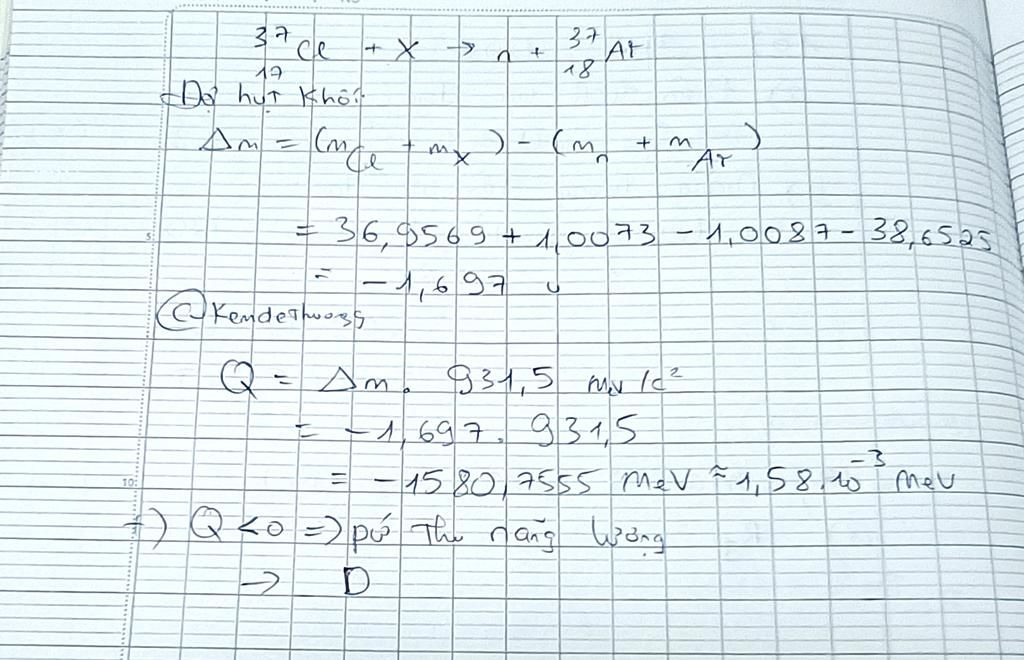 37 Cl + X → n + 37 Ar
17 18
- Độ hụt khối:
Δm = (mCl + mX) - (mn + mAr)
= 36,9569 + 1,0073 - 1,0087 - 38,6525
= -1,697 u
© Kemdethuong
Q = Δm. 931,5 MeV/c²
= -1,697. 931,5
= -1580,7555 MeV ≈ 1,58.10⁻³ MeV
+) Q < 0 => pứ thu năng lượng
→ D
5
10